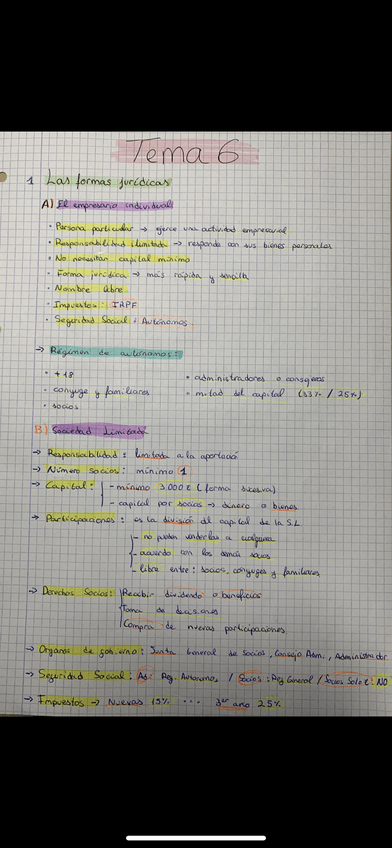 Tema 6
1 Las formas jurídicas
A) El empresario individual
• Persona particular → ejerce una actividad empresarial
• Responsabilidad ilimitada → responde con sus bienes personales
• No necesitan capital mínimo
• Forma jurídica → más rápida y sencilla
• Nombre libre
• Impuestos: IRPF
• Seguridad Social: Autónomos
→ Régimen de autónomos:
• +18
• conyuge y familiares
• socios
• administradores o consejeros
• mitad del capital (33% / 25%)
B) Sociedad Limitada
→ Responsabilidad: limitada a la aportació
→ Número socios: mínimo 1
→ Capital: - mínimo 3.000 € (forma sucesiva)
- capital por socios → dinero o bienes
→ Participaciones: es la división del capital de la S.L
- no pueden venderlas a cualquiera
- acuerdo con los demás socios
- libre entre: socios, conyuges y familiares
→ Derechos Socios: Recibir dividendo o beneficios
Toma de decisiones
Compra de nuevas participaciones
→ Organos de gobierno: Junta General de Socios, Consejo Adm., Administrador
→ Seguridad Social: Ad: Reg. Autonomos / Socios: Reg General / Socios Solo €: NO
→ Impuestos → Nuevas 15% ... 3er año 25%